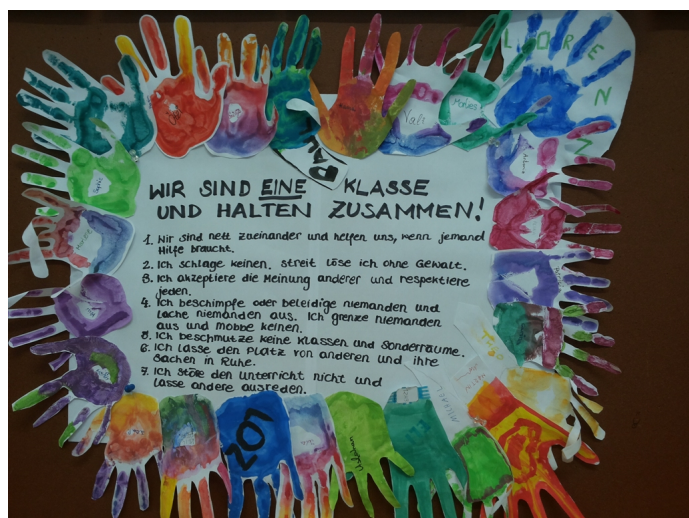 LOREN
N
Vali
Marlies
PAUL
WIR SIND EINE KLASSE
UND HALTEN ZUSAMMEN!
1. Wir sind nett zueinander und helfen uns, wenn jemand
Hilfe braucht.
2. Ich schlage keinen, streit löse ich ohne Gewalt.
3. Ich akzeptiere die Meinung anderer und respektiere
jeden.
4. Ich beschimpfe oder beleidige niemanden und
lache niemanden aus. Ich grenze niemanden
aus und mobbe keinen.
5. Ich beschmutze keine Klassen und Sonderräume.
6. Ich lasse den Platz von anderen und ihre
Sachen in Ruhe.
7. Ich störe den Unterricht nicht und
lasse andere ausreden.